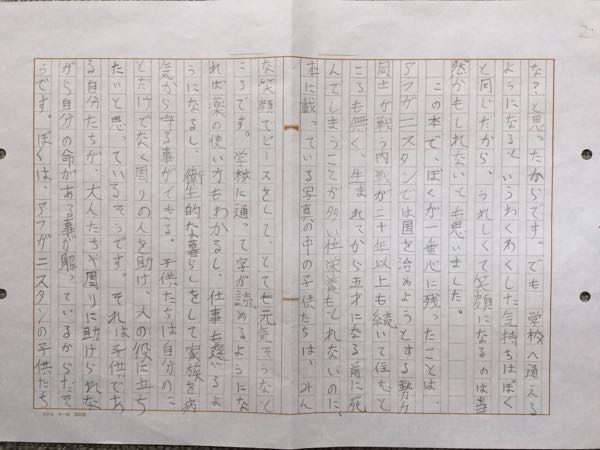 2
な?と思ったからです。でも、学校へ通える
ようになるというわくわくした気持ちはぼく
と同じだから、うれしくて笑顔になるのは当
然かもしれないとも思いました。
この本で、ぼくが一番心に残ったことは、
アフガニスタンでは国を治めようとする勢力
同士が戦う内戦が二十年以上も続いて住むと
ころも無く、生まれてから五才になる前に死
んでしまうことが多い位栄養もとれないのに、
本に載っている写真の中の子供たちは、みん
な笑顔でピースをして、とても元気そうなと
ころです。学校に通って字が読めるようにな
れば薬の使い方もわかるし、仕事も選べるよ
うになるし、衛生的な暮らしをして家族を病
気から守る事ができる。子供たちは自分のこ
とだけでなく周りの人を助け、人の役に立ち
たいと思っているそうです。それは子供であ
る自分たちが、大人たちや周りに助けられな
がら自分の命がある事が解っているからだそ
うです。ぼくは、アフガニスタンの子供たち